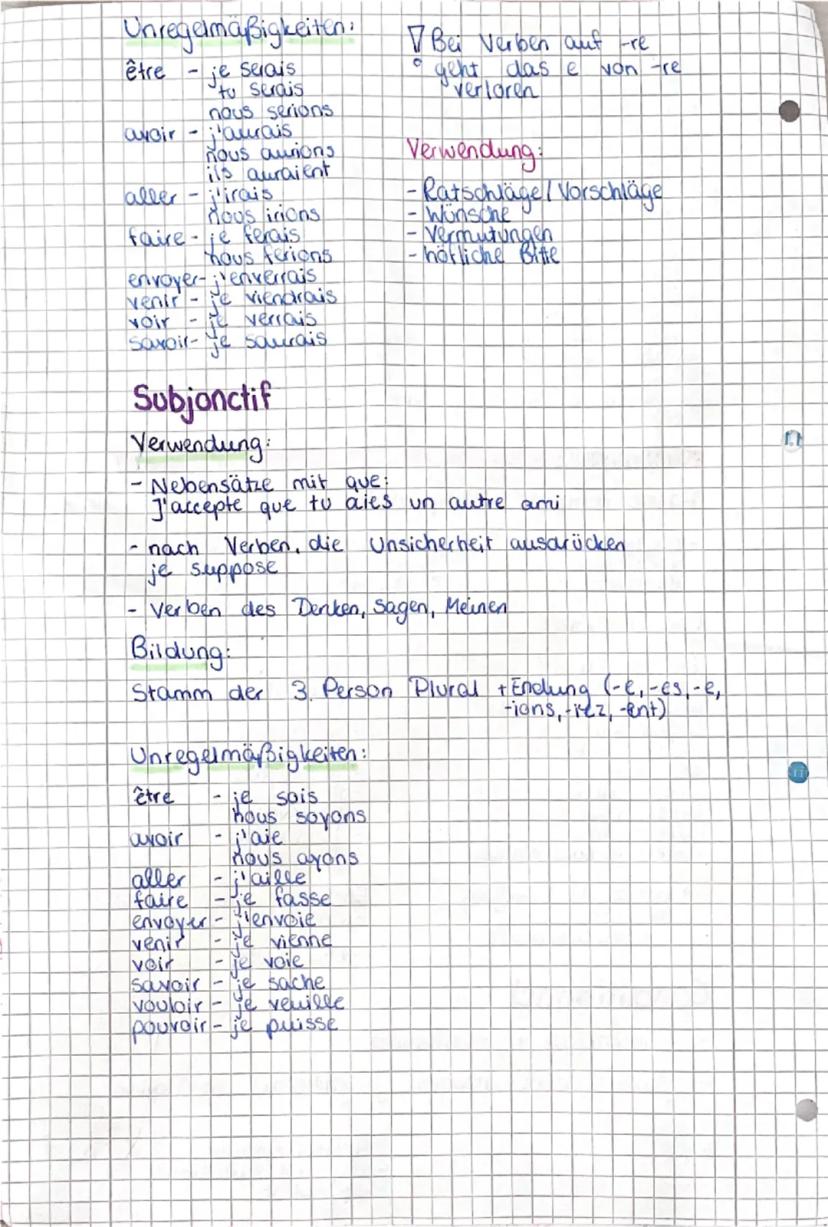 Unregelmäßigkeiten:
être - je serais
tu serais
nous serions
avoir - j'aurais
nous aurions
ils auraient
aller - j'irais
nous irions
faire - je ferais
nous ferions
envoyer - j'enverrais
venir - je viendrais
voir - je verrais
savoir - je saurais
Bei Verben auf -re
geht das e von -re
verloren
Verwendung:
- Ratschläge/Vorschläge
- Wünsche
- Vermutungen
- höfliche Bitte
Subjonctif
Verwendung:
- Nebensätze mit que:
J'accepte que tu aies un autre ami
- nach Verben, die Unsicherheit ausdrücken
je suppose
- Verben des Denken, Sagen, Meinen
Bildung:
Stamm der 3. Person Plural + Endung (-e, -es, -e,
-ions, -iez, -ent)
Unregelmäßigkeiten:
être - je sois
nous soyons
avoir - j'aie
nous ayons
aller - j'aille
faire - je fasse
envoyer - j'envoie
venir - je vienne
voir - je voie
savoir - je sache
vouloir - je veuille
pouvoir - je puisse